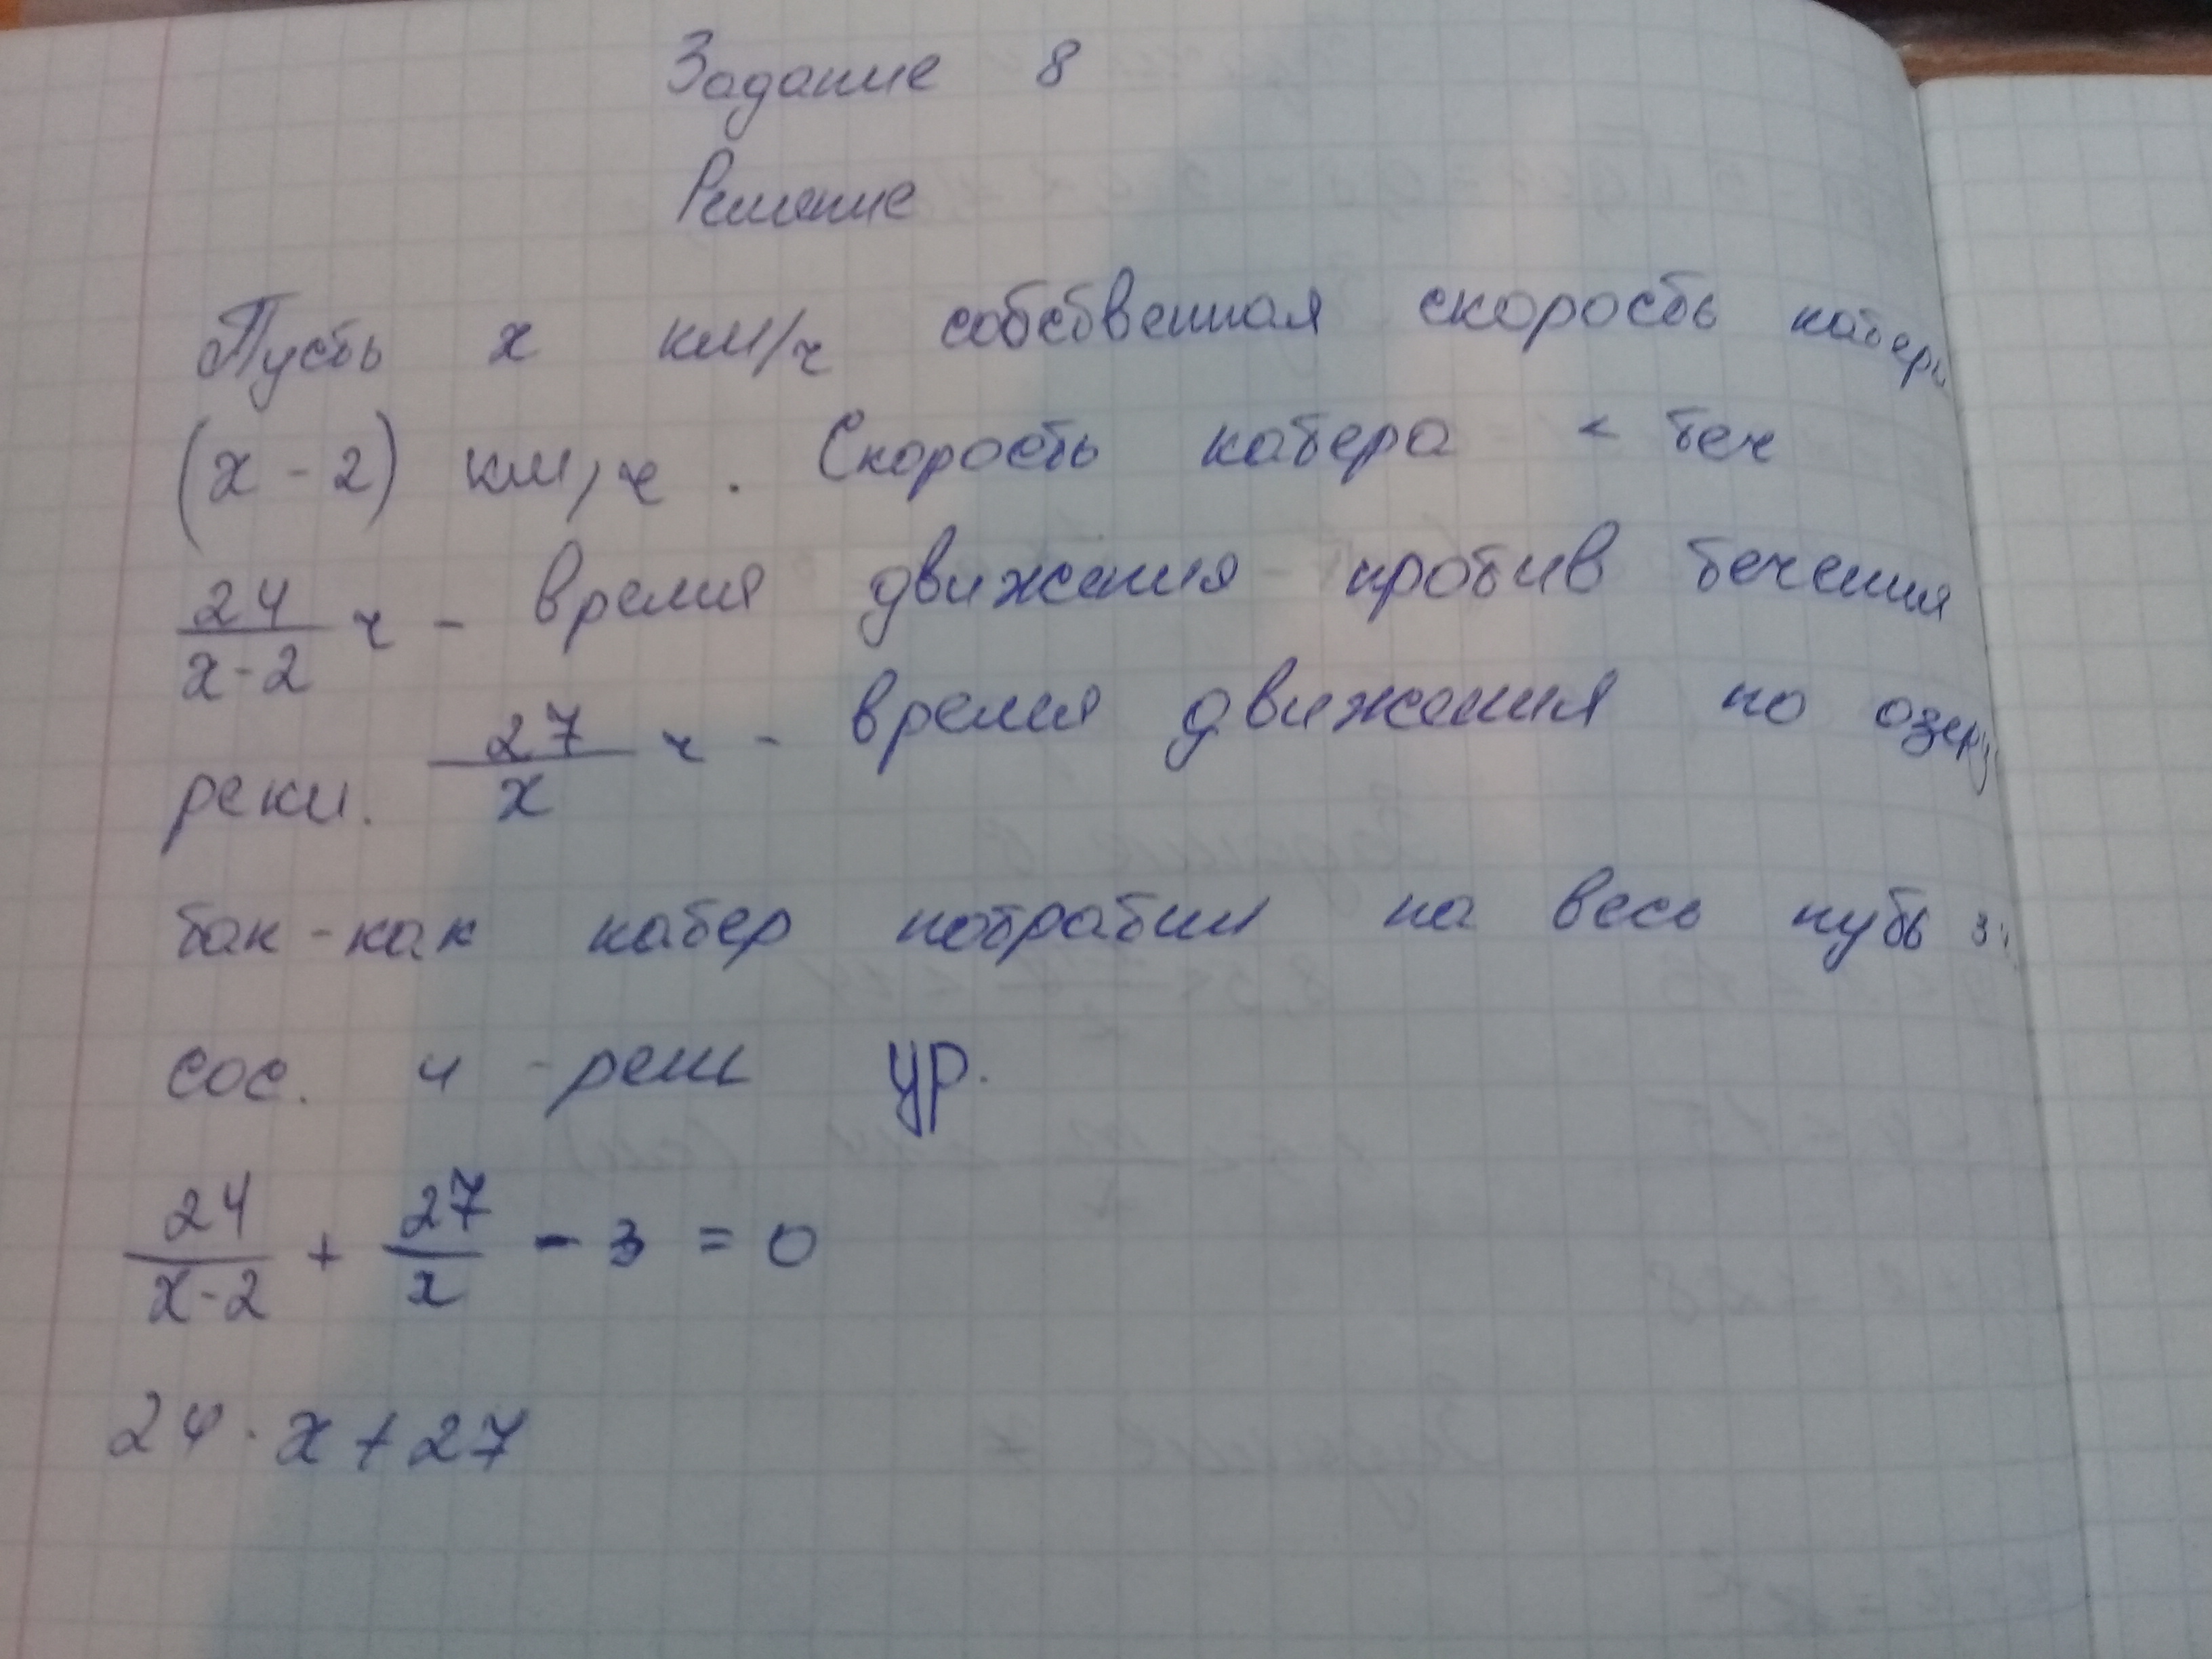 Задание 8
Решение
Пусть x км/ч собственная скорость катера
(x - 2) км/ч. Скорость катера < теч
24/(x-2) ч - время движения против течения
реки. 27/x ч - время движения по озеру
так-как катер потратил на весь путь 3ч
сос. и реш ур.
24/(x-2) + 27/x - 3 = 0
24 · x + 27